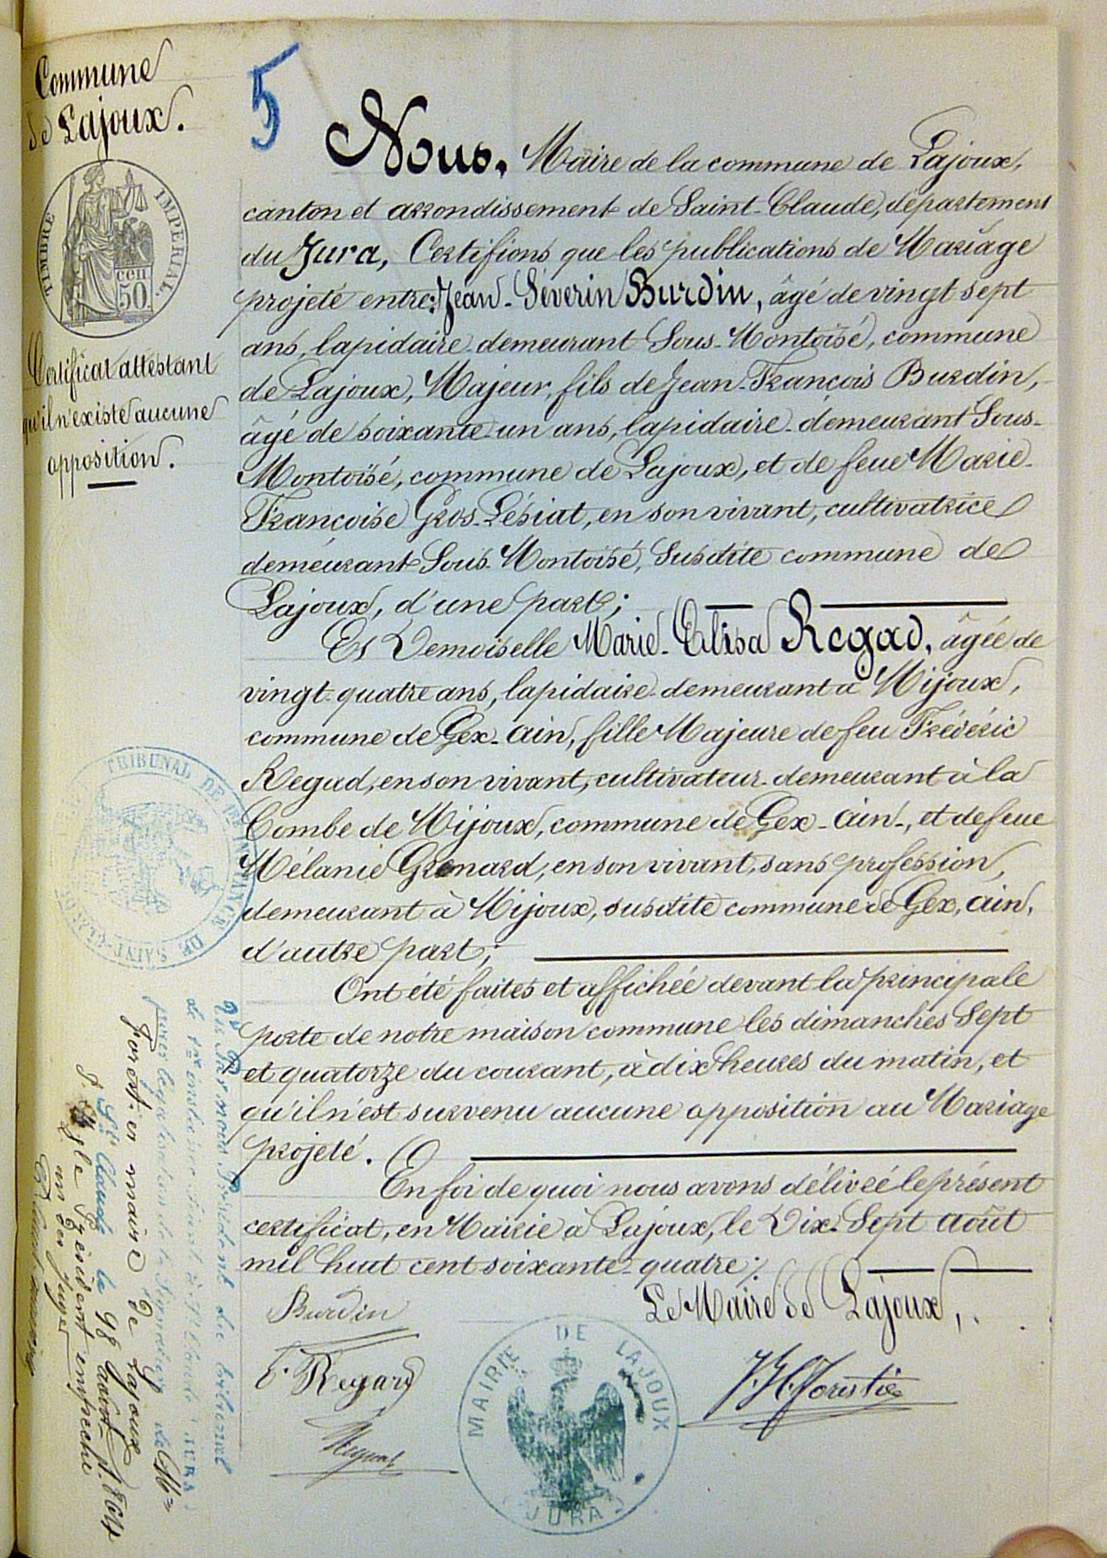 Commune
de Lajoux.
5
TIMBRE IMPERIAL.
cen
50.
Certificat attestant
qu'il n'existe aucune
opposition.
Nous, Maire de la commune de Lajoux,
canton et arrondissement de Saint-Claude, département
du Jura, Certifions que les publications de Mariage
projeté entre: Jean-Séverin Burdin, âgé de vingt sept
ans, lapidaire demeurant Sous-Montoisé, commune
de Lajoux, Majeur, fils de Jean-François Burdin,
âgé de soixante-un ans, lapidaire demeurant Sous-
Montoisé, commune de Lajoux, et de feue Marie-
Françoise Gros-Lésiat, en son vivant, cultivatrice
demeurant Sous-Montoisé, Susdite commune de
Lajoux, d'une part;
Et Demoiselle Marie-Elisa Regad, âgée de
vingt-quatre ans, lapidaire demeurant à Mijoux,
commune de Gex-ain, fille Majeure de feu Frédéric
Regad, en son vivant, cultivateur demeurant à la
Combe de Mijoux, commune de Gex-ain-, et de feue
Mélanie Grenard, en son vivant, sans profession,
demeurant à Mijoux, susdite commune de Gex, ain,
d'autre part;
Ont été faites et affichée devant la principale
porte de notre maison commune les dimanches Sept
et quatorze du courant, à dix heures du matin, et
qu'il n'est survenu aucune opposition au Mariage
projeté.
En foi de quoi nous avons délivré le présent
certificat, en Mairie à Lajoux, le Dix-Sept août
mil huit cent soixante-quatre ;
Le Maire de Lajoux,
Burdin
E. Regard
Regad
MAIRIE DE LAJOUX
(JURA)
TRIBUNAL DE INSTANCE DE SAINT-CLAUDE
Vu par nous Président du tribunal
de 1re instance séant à St Claude (JURA)
pour légalisation de la Signature de Mr
Forest maire de Lajoux
St Claude le 18 août 1864
le président empêché
un des juges